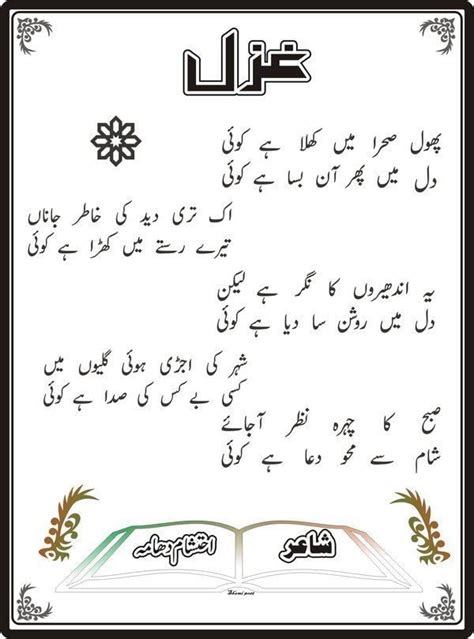 غزل
پھول صحرا میں کھلا ہے کوئی
دل میں پھر آن بسا ہے کوئی
اک تری دید کی خاطر جاناں
تیرے رستے میں کھڑا ہے کوئی
یہ اندھیروں کا نگر ہے لیکن
دل میں روشن سا دیا ہے کوئی
شہر کی اجڑی ہوئی گلیوں میں
کسی بے کس کی صدا ہے کوئی
صبح کا چہرہ نظر آجائے
شام سے محو دعا ہے کوئی
شاعر
احتشام دھامہ